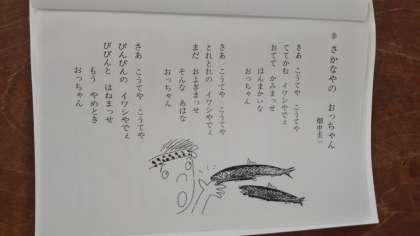 さかなやの　おっちゃん
畑中圭一
さあ　こうてや　こうてや
ててかむ　イワシやでぇ
おてて　かみまっせ
ほんまかいな
おっちゃん
さあ　こうてや　こうてや
とれとれの　イワシやでぇ
まだ　およぎまっせ
そんな　あほな
おっちゃん
さあ　こうてや　こうてや
ぴんぴんの　イワシやでぇ
ぴぴんと　はねまっせ
もう　やめとき
おっちゃん